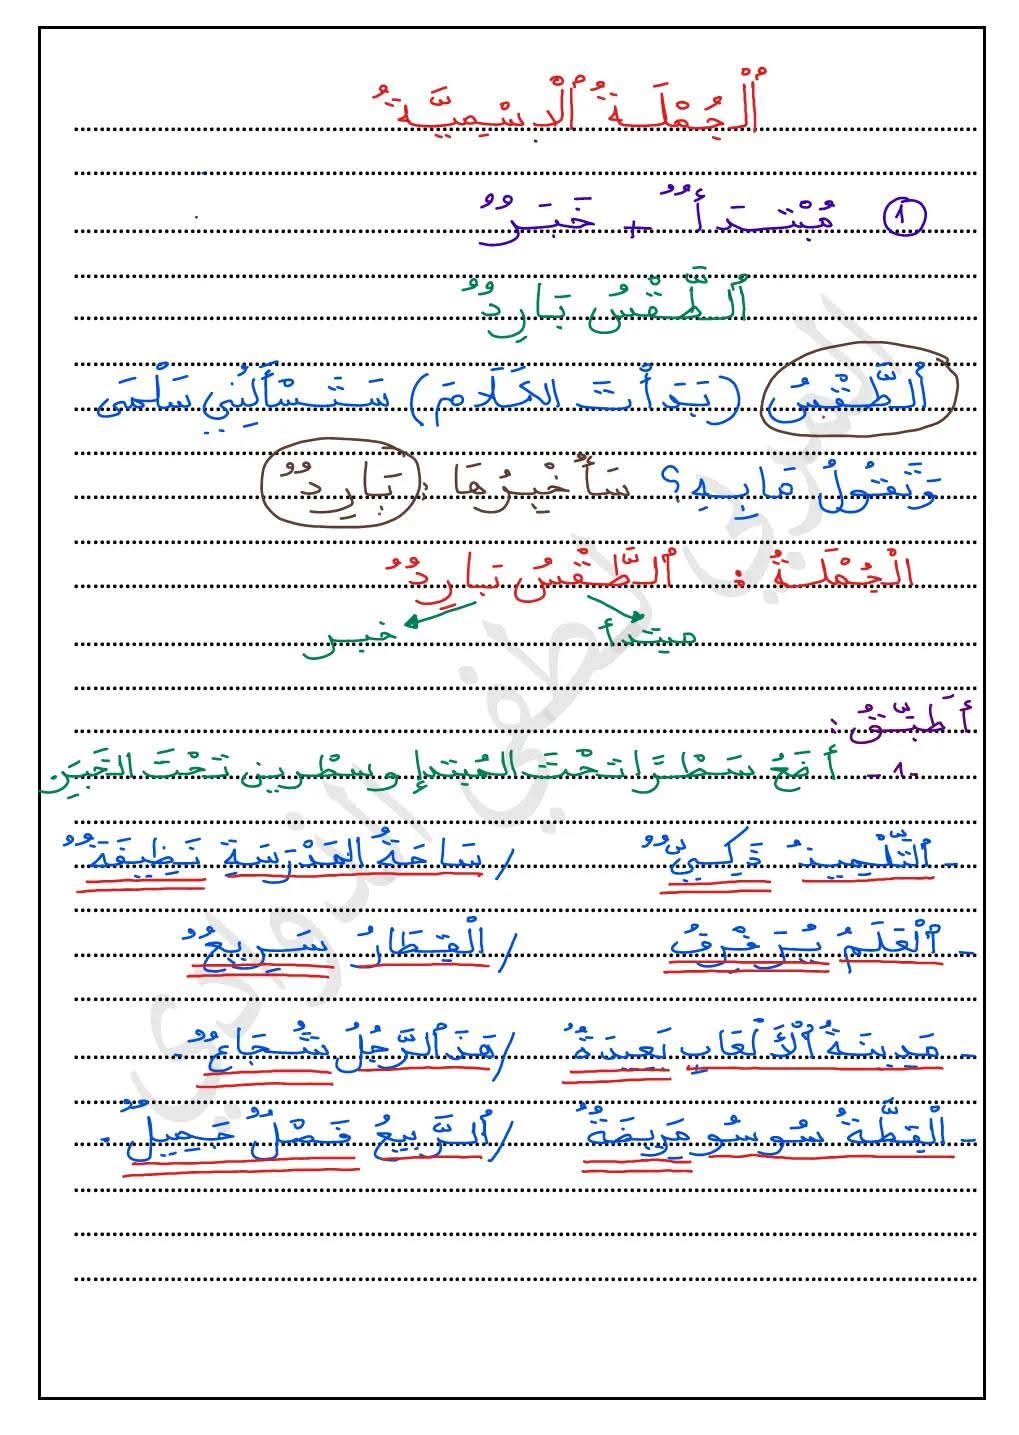 اُلْجُمْلَةُ اُلْاسْمِيَّةُ
① مُبْتَدَأٌ + خَبَرٌ
اُلطَّقْسُ بَارِدٌ
اُلطَّقْسُ (بَدَأْتَ الكَلَامَ) سَتَسْأَلُنِي سَلْمَى
وَتَقُولُ مَا بِهِ؟ سَأُخْبِرُهَا : بَارِدٌ
الْجُمْلَةُ : اُلطَّقْسُ بَارِدٌ
مبتدأ خبر
أطَبِّقُ :
-1- أَضَعُ سَطْرًا تَحْتَ المُبتدإ وسطْرين تَحْتَ الخَبَرِ
- اُلتِّلْمِيذُ ذَكِيٌّ / سَاحَةُ المَدْرَسَةِ نَظِيفَةٌ
- اُلْعَلَمُ يُرَفْرِفُ / الْقِطَارُ سَرِيعٌ
- مَدِينَةُ اُلْأَلْعَابِ بَعِيدَةٌ / هَذَا اُلرَّجُلُ شُجَاعٌ.
- الْقِطَّةُ سُوسُو مَرِيضَةٌ / اُلرَّبِيعُ فَصْلٌ جَمِيلٌ.
العربي لطفي الذوادي